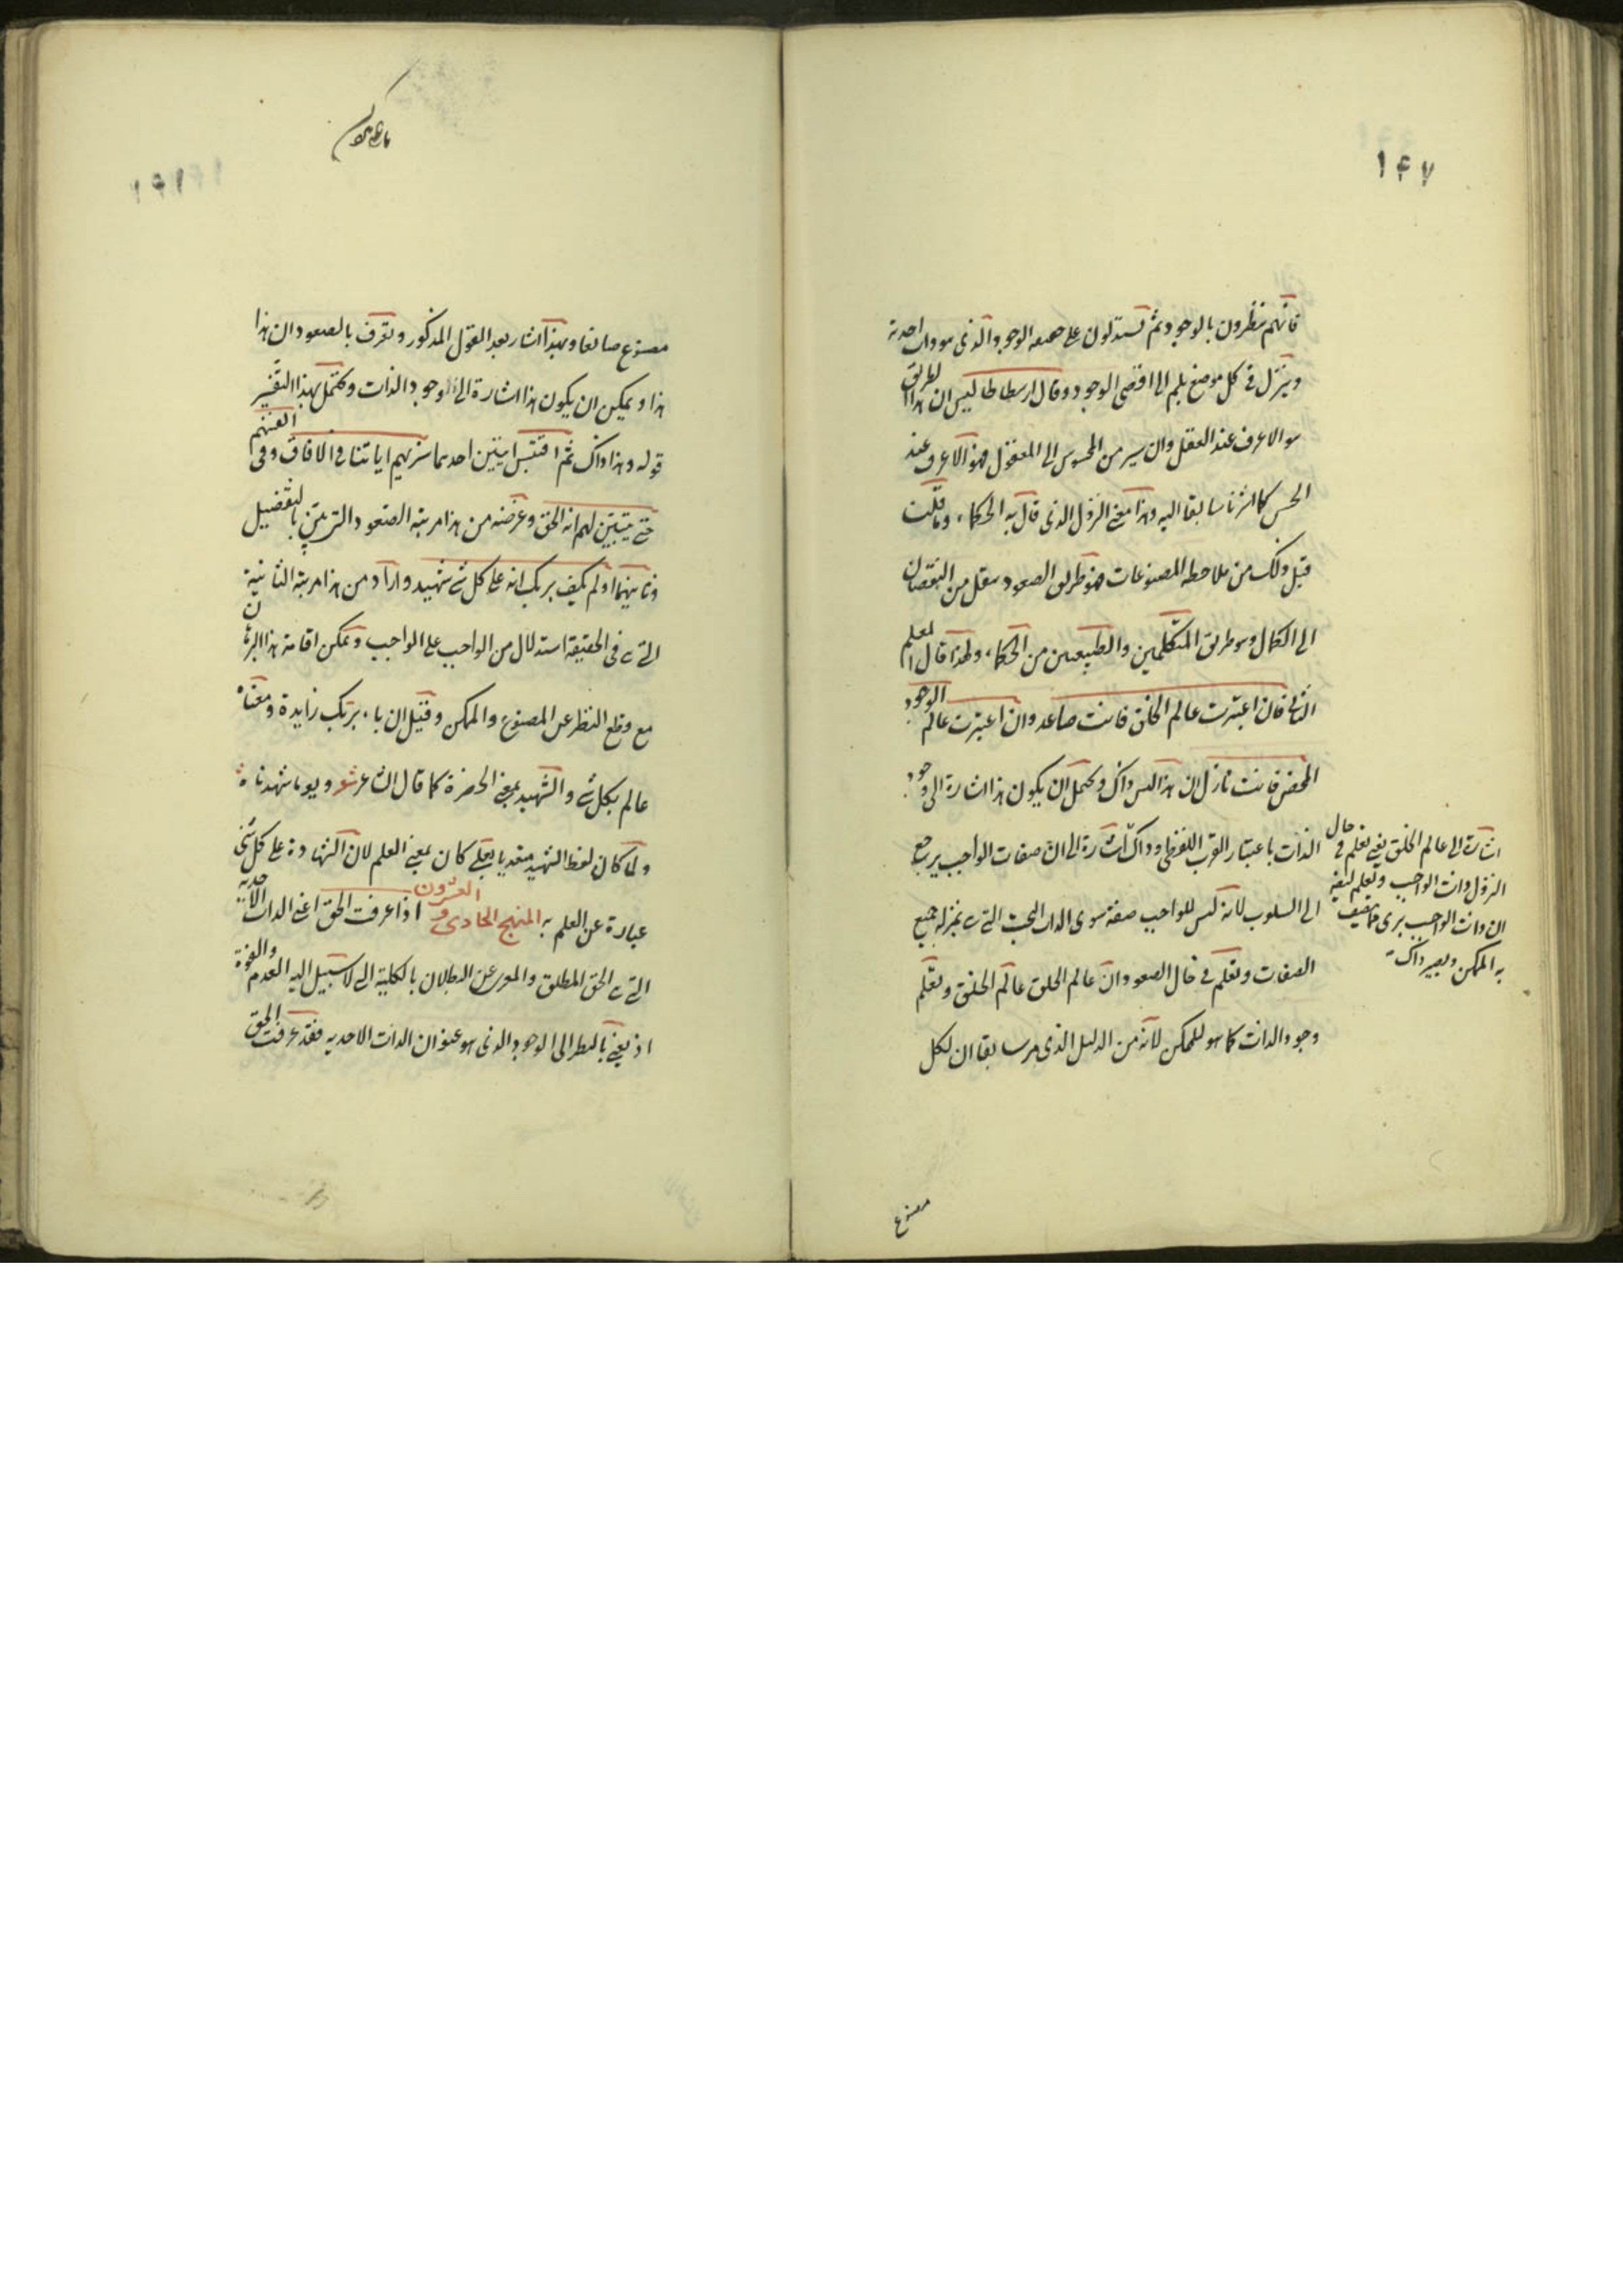 ١٤٧
فانهم ينظرون بالوجود ثم يستدلون على حقيقة الوجود الذى هو ذات احدية
وينزل فى كل موضع بلم الى اقصى الوجود وقال ارسطاطاليس ان هذا الطريق
هو الاعرف عند العقل وان سير من المحسوس الى المعقول فهو الاعرف عند
الحس كما اشرنا سابقا اليه وهذا معنى النزول الذى قال به الحكماء وما قلت
قبل ذلك من ملاحظة المصنوعات فهو طريق الصعود ينتقل من النقصان
الى الكمال وهو طريق المتكلمين والطبيعيين من الحكماء ولهذا قال المعلم
الثانى فان اعتبرت عالم الخلق فانت صاعد وان اعتبرت عالم الوجود
المحض فانت نازل ان هذا ليس ذاك ويحتمل ان يكون هذا اشارة الى وجود
الذات باعتبار القرب اللفظى وذاك اشارة الى ان صفات الواجب يرجع
الى السلوب لانه ليس للواجب صفة سوى الذات البحت التى هى بمنزلة جميع
الصفات وتعلم فى حال الصعود ان عالم الخلق عالم الخلق وتعلم
وجود الذات كما هو للممكن لانه من الدليل الذى مر سابقا ان لكل
اشارة الى عالم الخلق يعنى تعلم فى حال
النزول ذات الواجب وتعلم
ان ذات الواجب برى مما يتصف
به الممكن وبغير ذاك
مصنوع
مصنوع صانعا وبهذا اشار بعد القول المذكور وتعرف بالصعود ان هذا
هذا ويمكن ان يكون هذا اشارة الى الوجود الذات ويحتمل بهذا التفسير
قوله وهذا ذاك ثم اقتبس ايتين احدهما سنريهم اياتنا فى الافاق وفى انفسهم
حتى يتبين لهم انه الحق وغرضه من هذا مرتبة الصعود التى بين بالتفصيل
وثانيهما اولم يكف بربك انه على كل شئ شهيد واراد من هذا مرتبة الثانية
التى هى فى الحقيقة استدلال من الواجب على الواجب ويمكن اقامة هذا البرهان
مع قطع النظر عن المصنوع والممكن وقيل ان باء بربك زايدة ومعناه
عالم بكل شئ والشهيد بمعنى الحضرة كما قال الشاعر شعر ويوما شهدناه
ولما كان لفظ الشهيد متعديا بعلى كان بمعنى العلم لان الشهادة على كل شئ
عبارة عن العلم به المنهج الحادى والعشرون اذا عرفت الحق اعنى الذات الاحدية
التى هى الحق المطلق والمعرى عن البطلان بالكلية الى لا سبيل اليه العدم والقوة
اذ يعنى بالنظر الى الوجود الذى هو عنوان الذات الاحدية فقد عرفت الحق